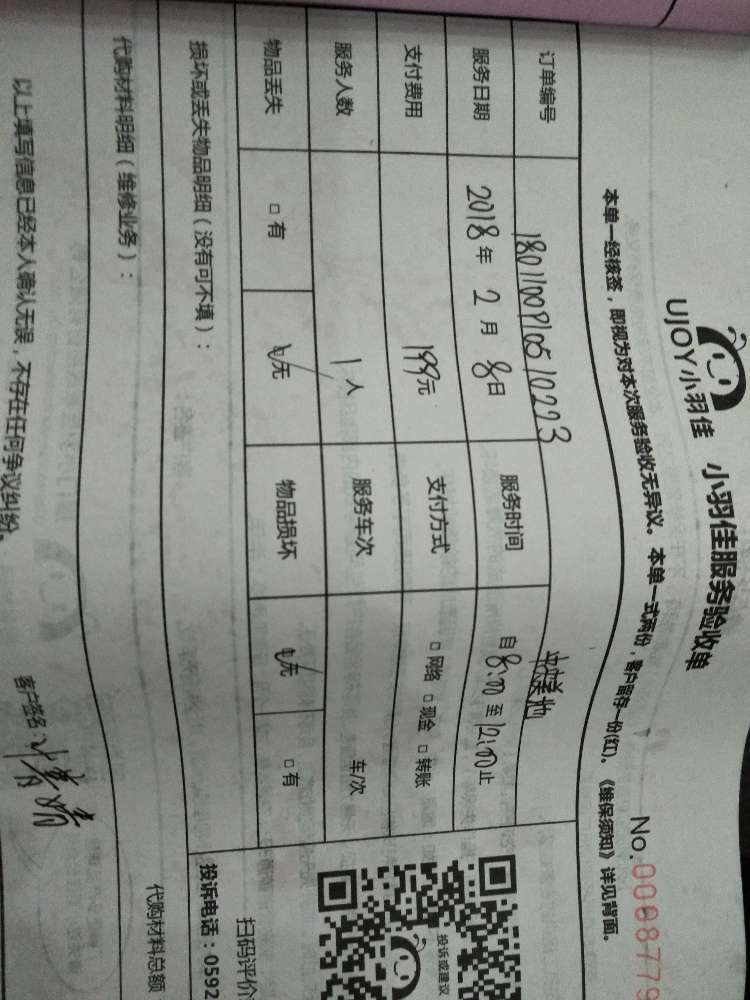 UJOY小羽佳 小羽佳服务验收单
No.0008779
本单一经核签，即视为对本次服务验收无异议。本单一式两份，客户留存一份(红)。《维保须知》详见背面。
订单编号 1801100910510223
服务日期 2018年 2月 8日 服务时间 自8:00至12:00止
支付费用 199元 支付方式 □网络 □现金 □转账
服务人数 1人 服务车次 车/次
物品丢失 □有 □无 物品损坏 □无 □有
损坏或丢失物品明细（没有可不填）：
代购材料明细（维修业务）：
以上填写信息已经本人确认无误，不存在任何争议纠纷。
客户签名：
投诉或建议
扫码评价
投诉电话：0592
代购材料总额